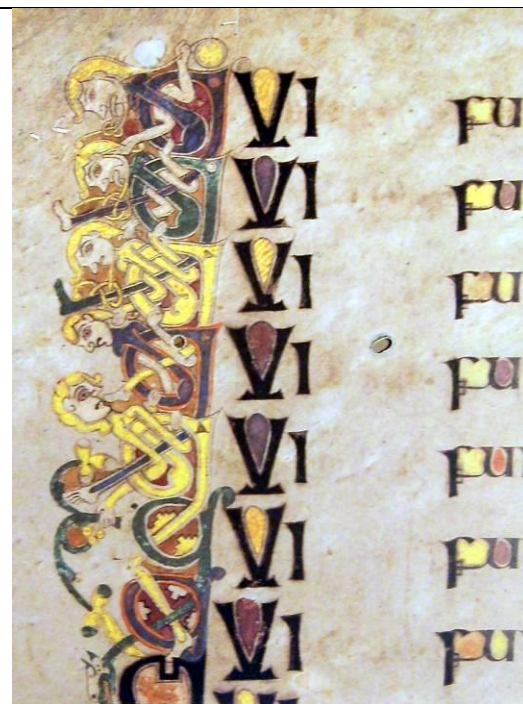 QVI fu
QVI fu
QVI fu
QVI fu
QVI fu
QVI fu
QVI fu